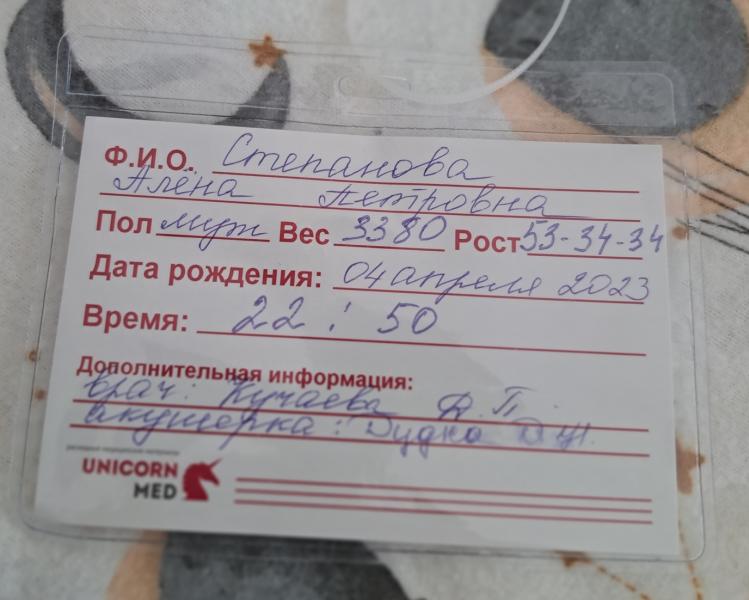 Ф.И.О. Степанова
Алёна Петровна
Пол муж Вес 3380 Рост 53-34-34
Дата рождения: 04 апреля 2023
Время: 22 : 50
Дополнительная информация:
врач: Кучаева П.
акушерка: Дудко
UNICORN
MED